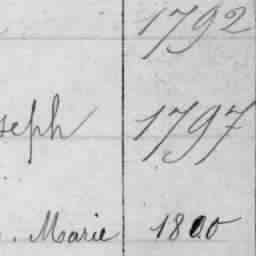 1792
seph 1797
. Marie 1800